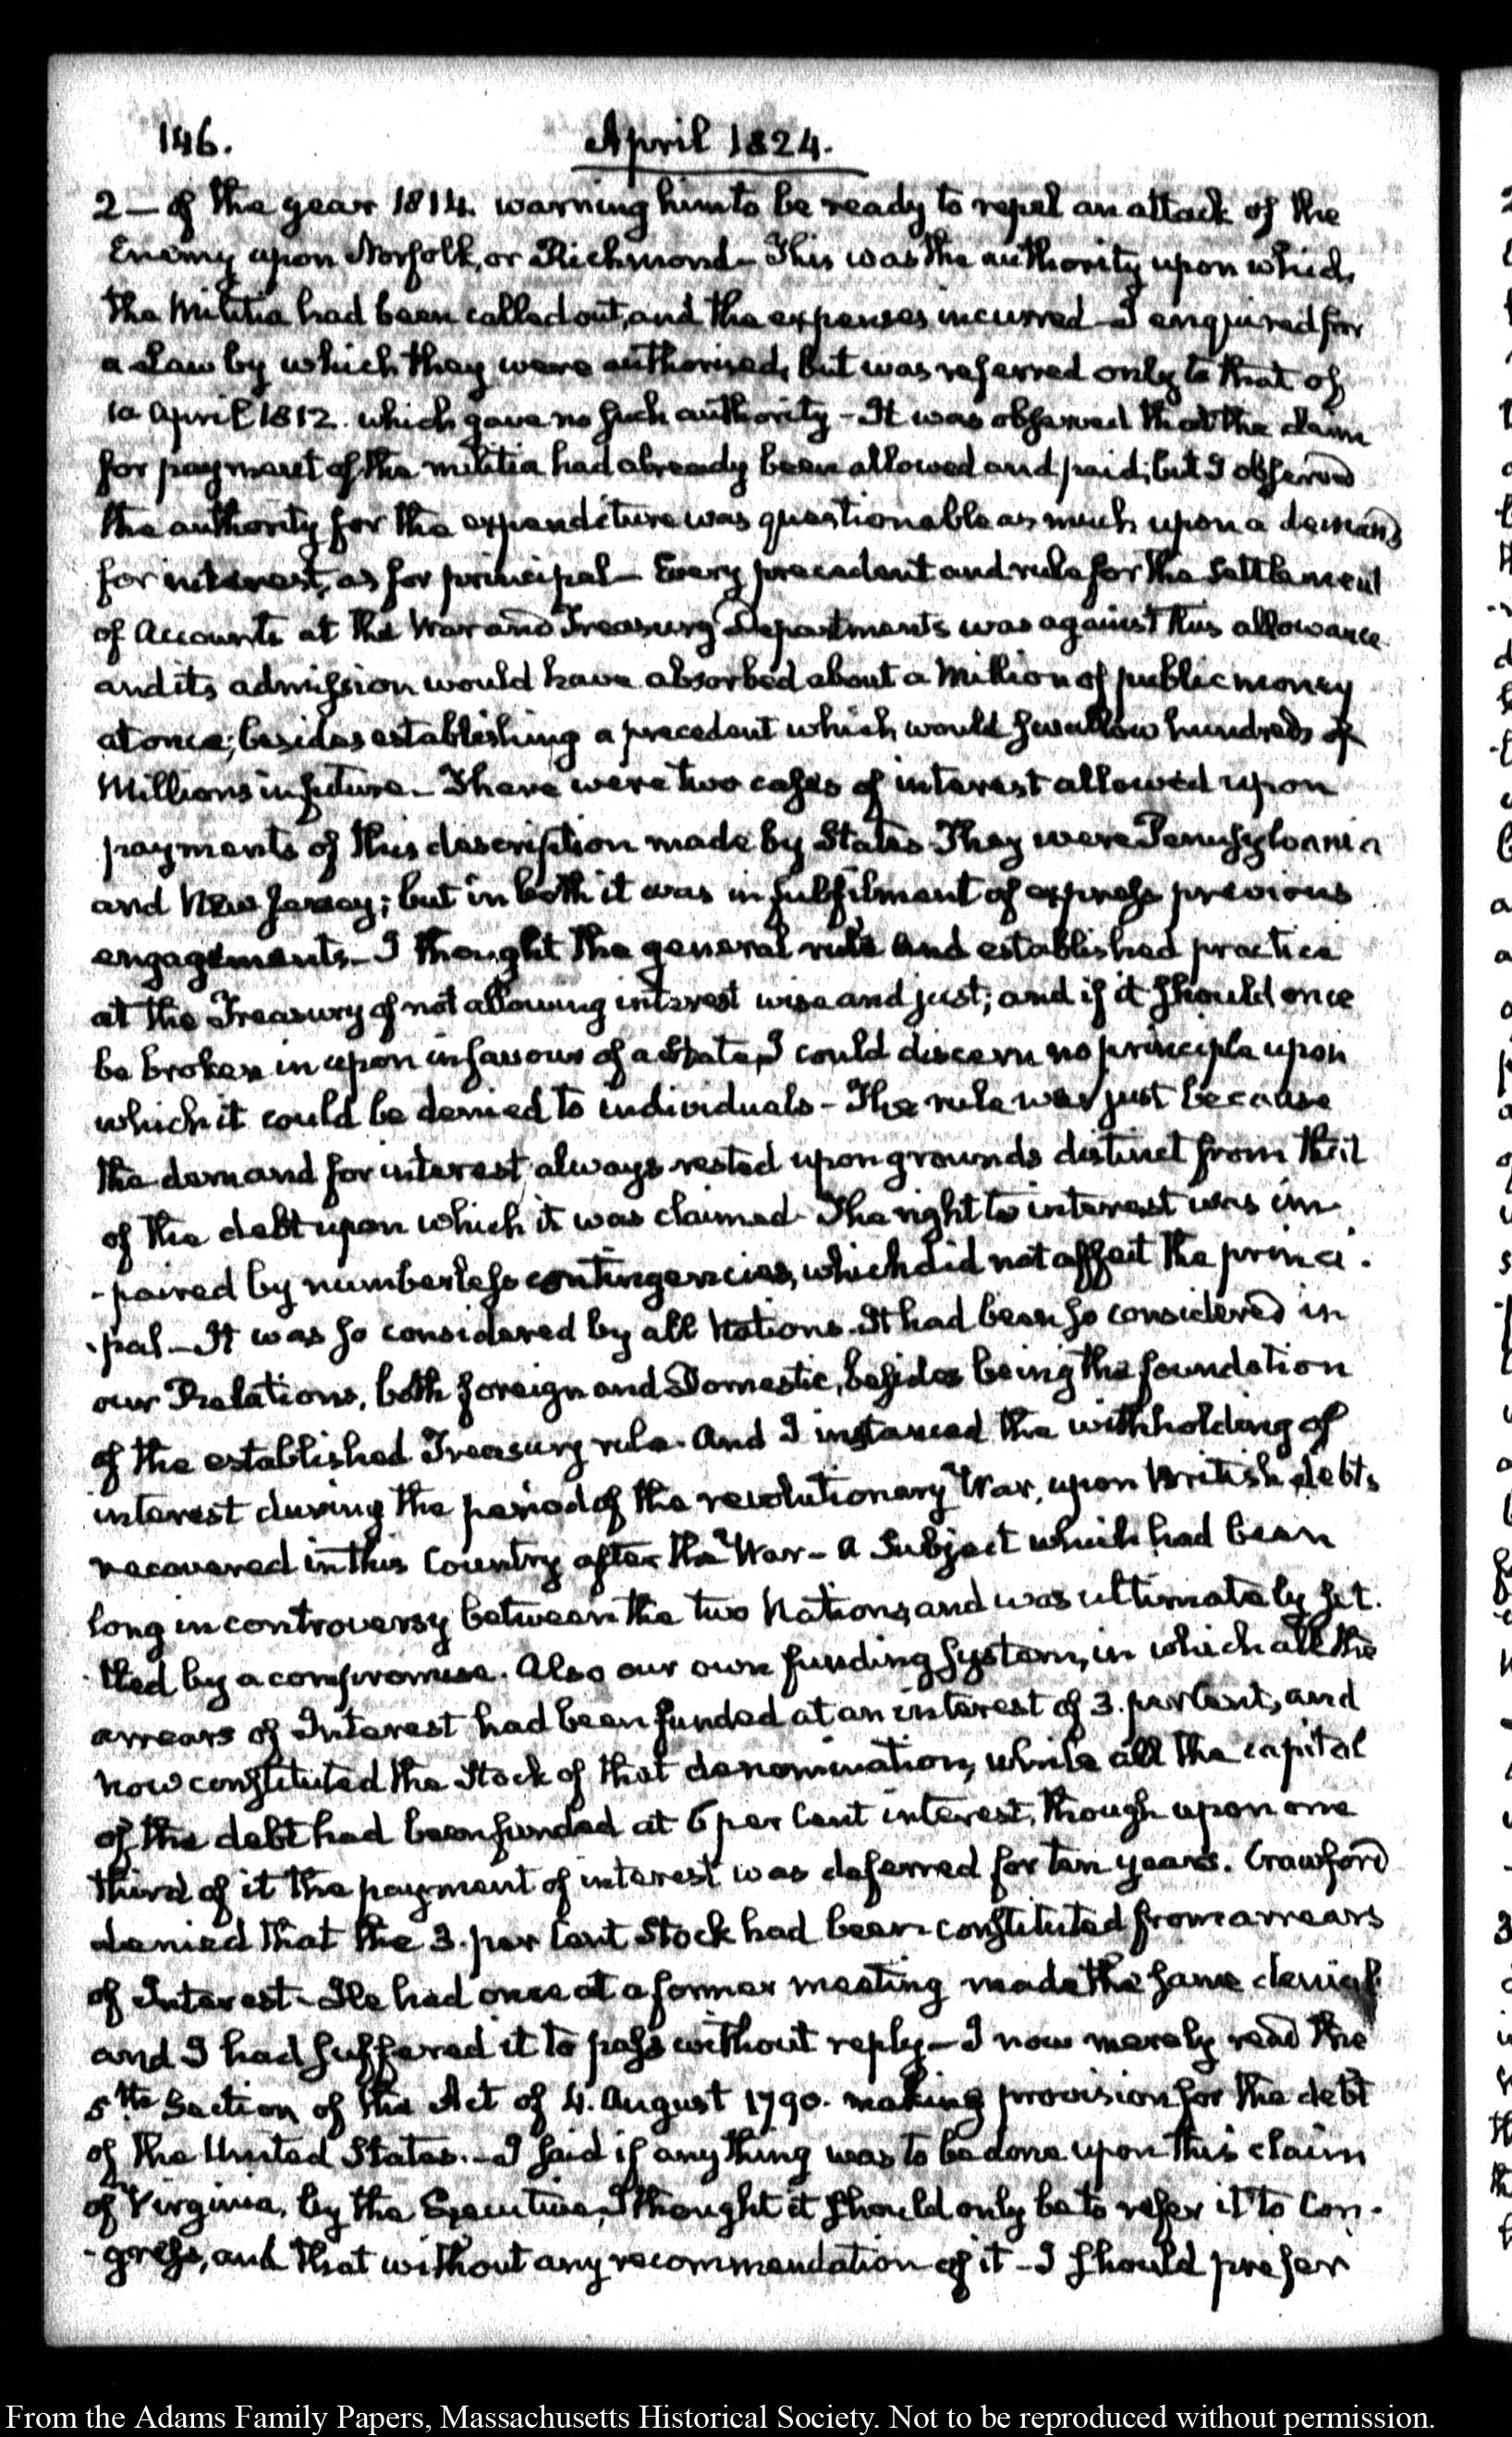 146.
April 1824.
2— of the year 1814. warning him to be ready to repel an attack of the
Enemy upon Norfolk, or Richmond— This was the authority upon which
the Militia had been called out, and the expenses incurred— I enquired for
a Law by which they were authorised, but was referred only to that of
10 April 1812. which gave no such authority— It was observed that the claim
for payment of the militia had already been allowed and paid; but I observed
the authority for the expenditure was questionable as much upon a demand
for interest, as for principal— Every precedent and rule for the settlement
of Accounts at the War and Treasury Departments was against this allowance
and its admission would have absorbed about a Million of public money
at once; besides establishing a precedent which would swallow hundreds of
Millions in future— There were two cases of interest allowed upon
payments of this description made by States. They were Pennsylvania
and New Jersey; but in both it was in fulfilment of express previous
engagements— I thought the general rule and established practice
at the Treasury of not allowing interest wise and just; and if it should once
be broken in upon in favour of a State, I could discern no principle upon
which it could be denied to individuals— The rule was just because
the demand for interest always rested upon grounds distinct from that
of the debt upon which it was claimed. The right to interest was im-
-paired by numberless contingencies, which did not affect the princi-
-pal.— It was so considered by all Nations. It had been so considered in
our Relations, both foreign and Domestic, besides being the foundation
of the established Treasury rule. And I instanced the withholding of
interest during the period of the revolutionary War, upon British debts
recovered in this Country after the War— A Subject which had been
long in controversy between the two Nations, and was ultimately set-
-tled by a compromise. Also our own funding System, in which all the
arrears of Interest had been funded at an interest of 3. per Cent, and
now constituted the Stock of that denomination, while all the capital
of the debt had been funded at 6 per Cent interest, though upon one
third of it the payment of interest was deferred for ten years. Crawford
denied that the 3. per Cent Stock had been constituted from arrears
of Interest— He had once at a former meeting made the same denial
and I had suffered it to pass without reply— I now merely read the
5th. Section of the Act of 4. August 1790. making provision for the debt
of the United States.— I said if any thing was to be done upon this claim
of Virginia, by the Executive, I thought it should only be to refer it to Con-
-gress, and that without any recommendation of it— I should prefer
From the Adams Family Papers, Massachusetts Historical Society. Not to be reproduced without permission.